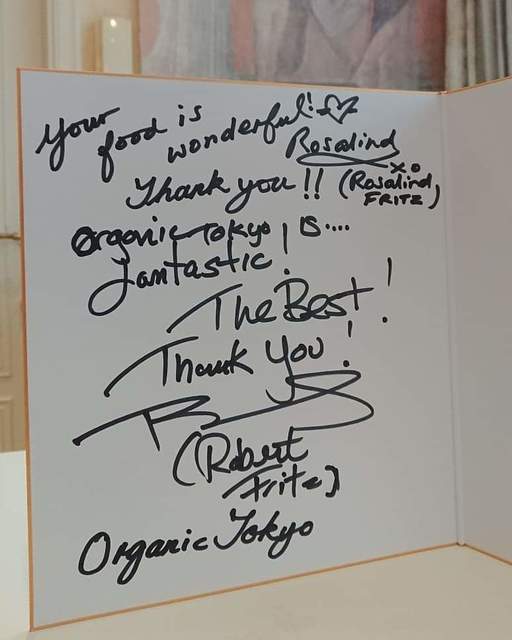 Your food is wonderful! ♡
Rosalind xo
Thank you!! (Rosalind FRITZ)
Organic Tokyo is....
fantastic!
The Best!
Thank You!
(Robert
Fritz)
Organic Tokyo